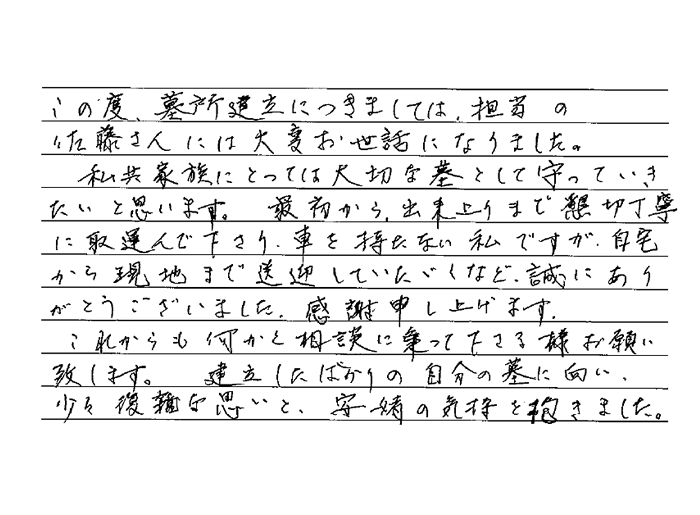 この度、墓所建立につきましては、担当の
佐藤さんには大変お世話になりました。
私共家族にとっては大切な墓として守っていき
たいと思います。 最初から、出来上りまで懇切丁寧
に取運んで下さり、車を持たない私ですが、自宅
から現地まで送迎していただくなど、誠にあり
がとうございました。感謝申し上げます。
これからも何かと相談に乗って下さる様お願い
致します。 建立したばかりの自分の墓に向い、
少々複雑な思いと、安緒の気持を抱きました。